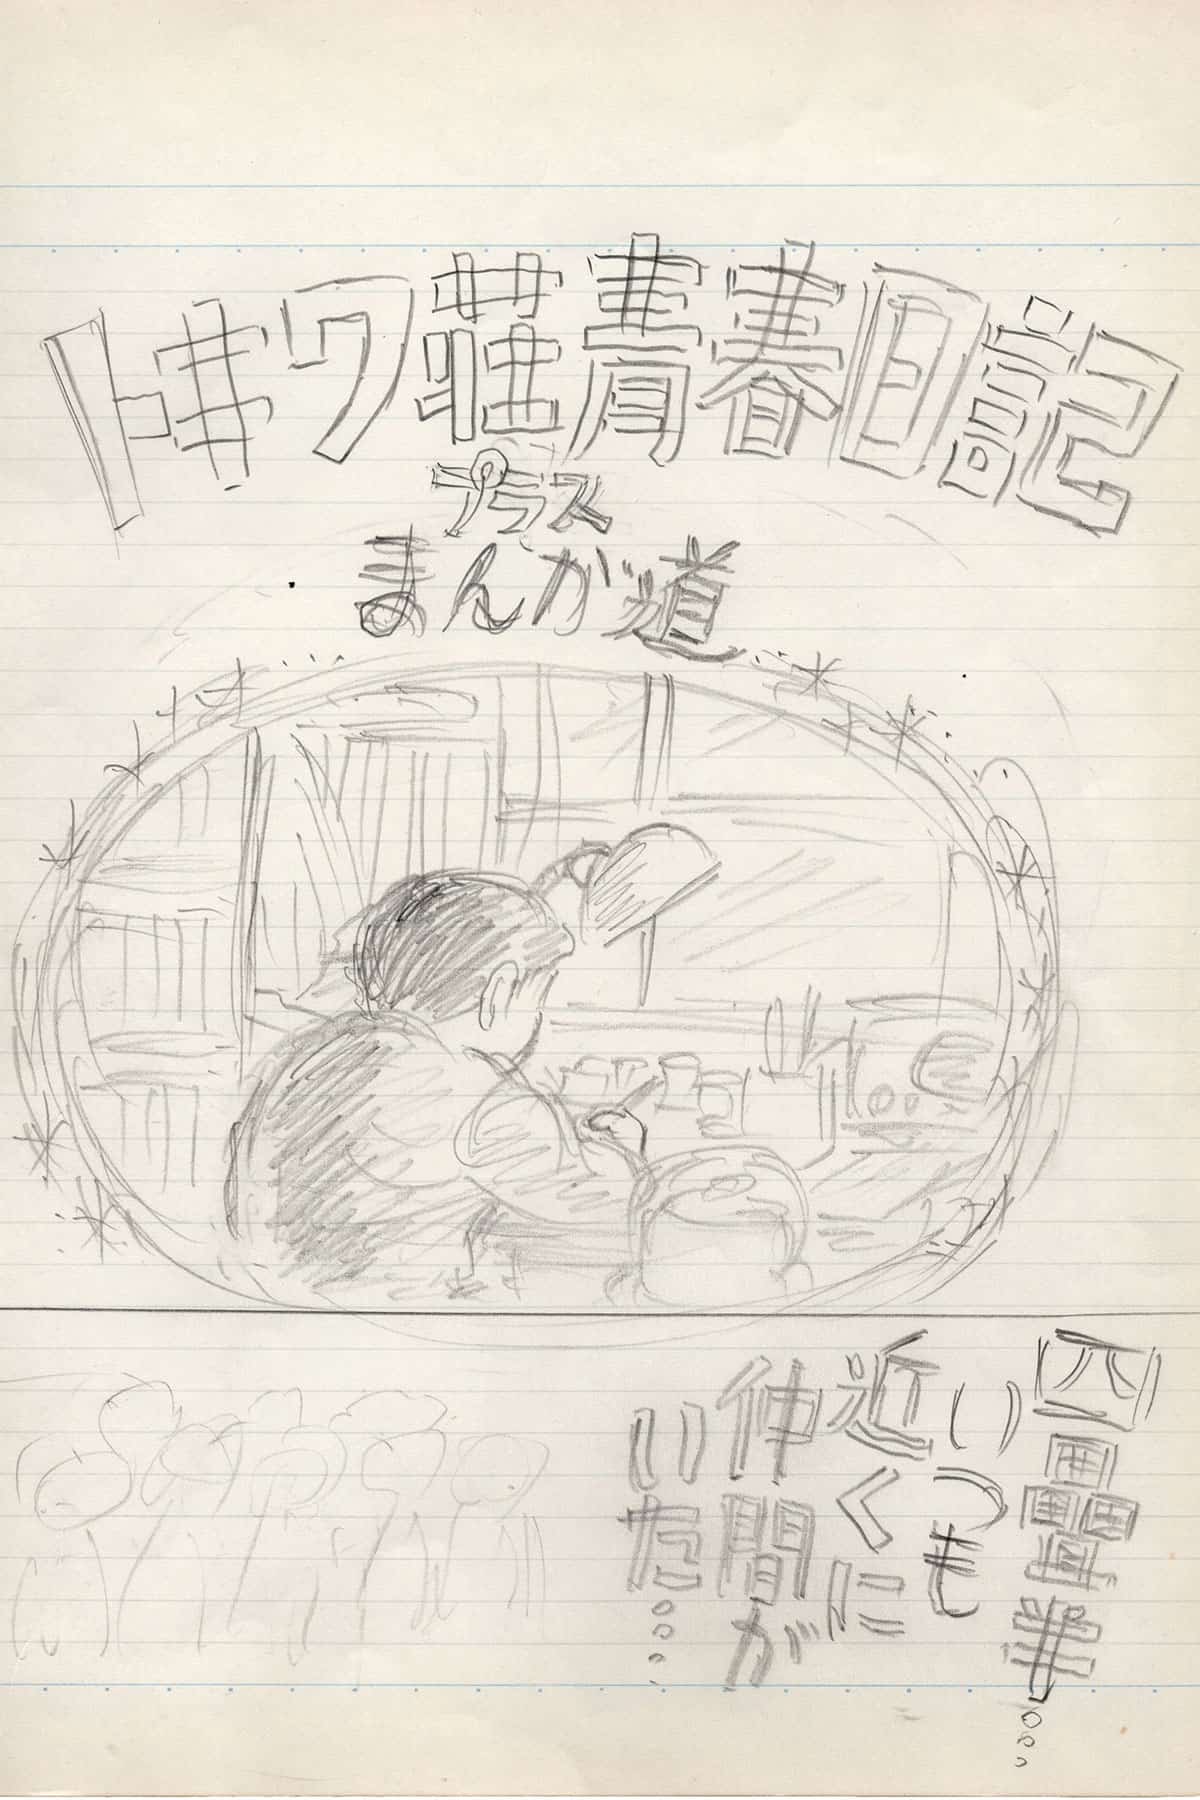 トキワ荘青春日記
プラス
まんが道
四畳半…
いつも
近くに
仲間が
いた…